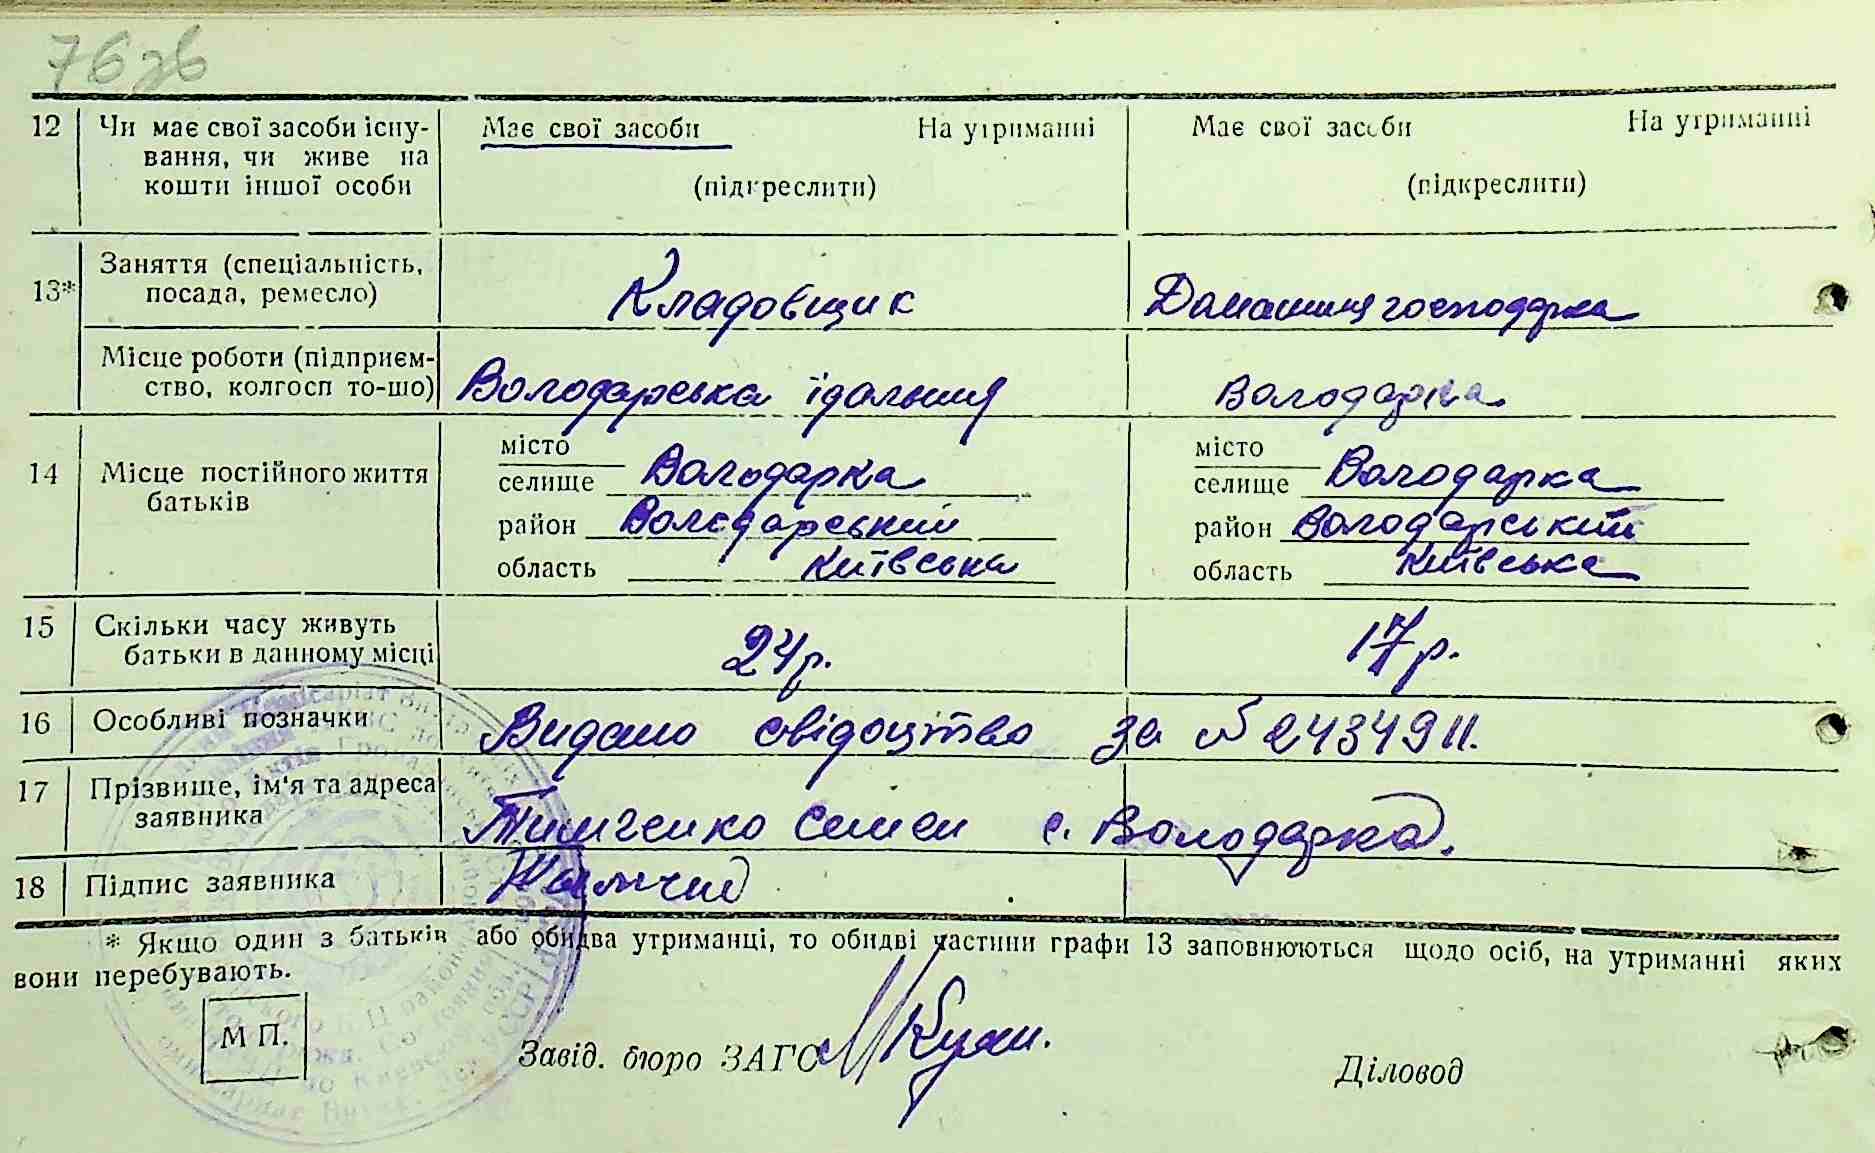 76 зв
12 Чи має свої засоби існу- Має свої засоби На утриманні Має свої засоби На утриманні
вання, чи живе на
кошти іншої особи (підкреслити) (підкреслити)
13* Заняття (спеціальність,
посада, ремесло) Кладовщик Домашня господарка
Місце роботи (підприєм-
ство, колгосп то-що) Володарська їдальня Володарка
14 Місце постійного життя
батьків
місто місто
селище Володарка селище Володарка
район Володарський район Володарський
область Київська область Київська
15 Скільки часу живуть
батьки в данному місці 24 р. 17 р.
16 Особливі позначки Видано свідоцтво за № 2434911.
17 Прізвище, ім'я та адреса
заявника Тимченко Семен с. Володарка.
18 Підпис заявника
* Якщо один з батьків або обидва утриманці, то обидві частини графи 13 заповнюються щодо осіб, на утриманні яких
вони перебувають.
М П.
Завід. бюро ЗАГС Діловод